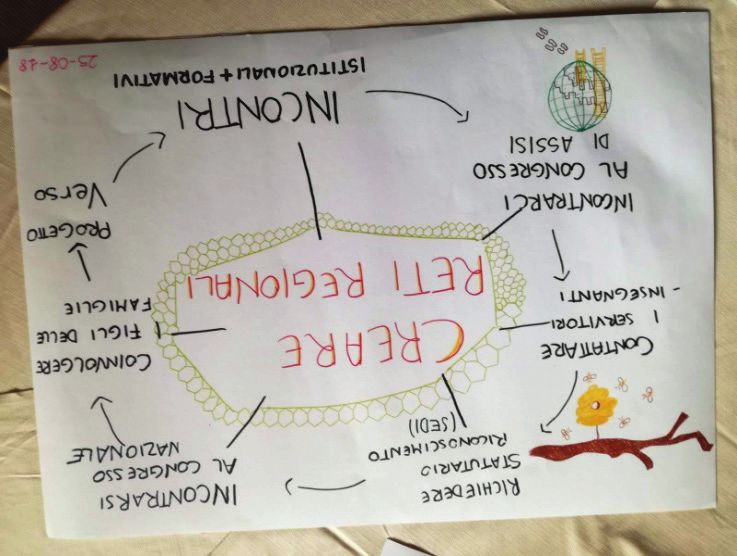 RICHIEDERE
STATUTARIO
RICONOSCIMENTO
(SEDI)
INCONTRARSI
AL CONGRESSO
NAZIONALE
CONTATTARE
I SERVITORI
- INSEGNANTI
CREARE
RETI REGIONALI
COINVOLGERE
FIGLI DELLE
FAMIGLIE
PROGETTO
VERSO
INCONTRARCI
AL CONGRESSO
DI ASSISI
INCONTRI
ISTITUZIONALI + FORMATIVI
25-08-18